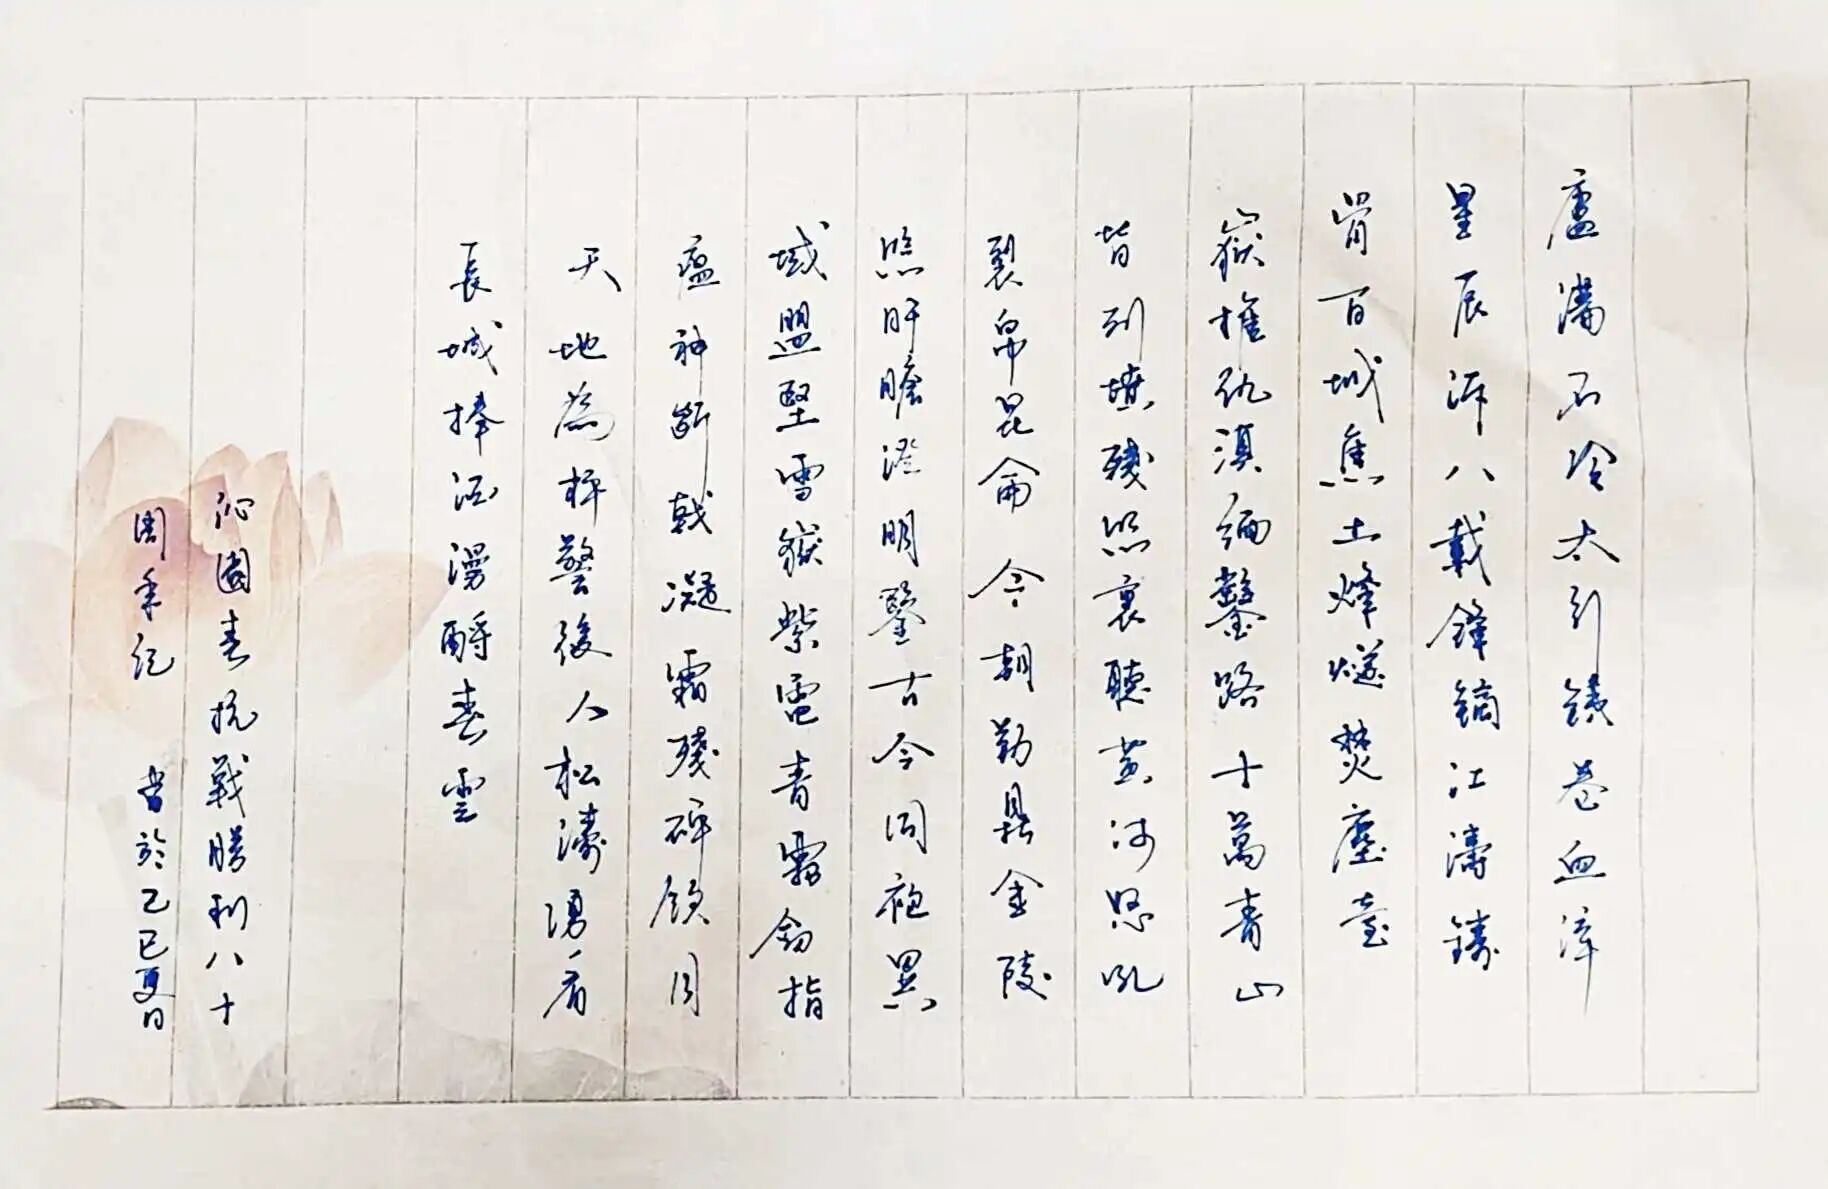 盧溝石冷太行鐵卷血滓
星辰泝八載鋒鏑江濤鑄
骨百城焦土烽燧焚塵臺
嶽摧仇滇緬鑿路十萬青山
皆列墳殘照裏聽黃河怒吼
裂帛昆侖今朝勒鼎金陵
照肝膽澄明鑒古今同袍異
域盟堅雪嶽紫電青霜劍指
瘟神斷戟凝霜殘碑飲月
天地為枰警後人松濤湧看
長城捧酒漫酹春雲
沁園春抗戰勝利八十
周年紀 書於乙巳夏日